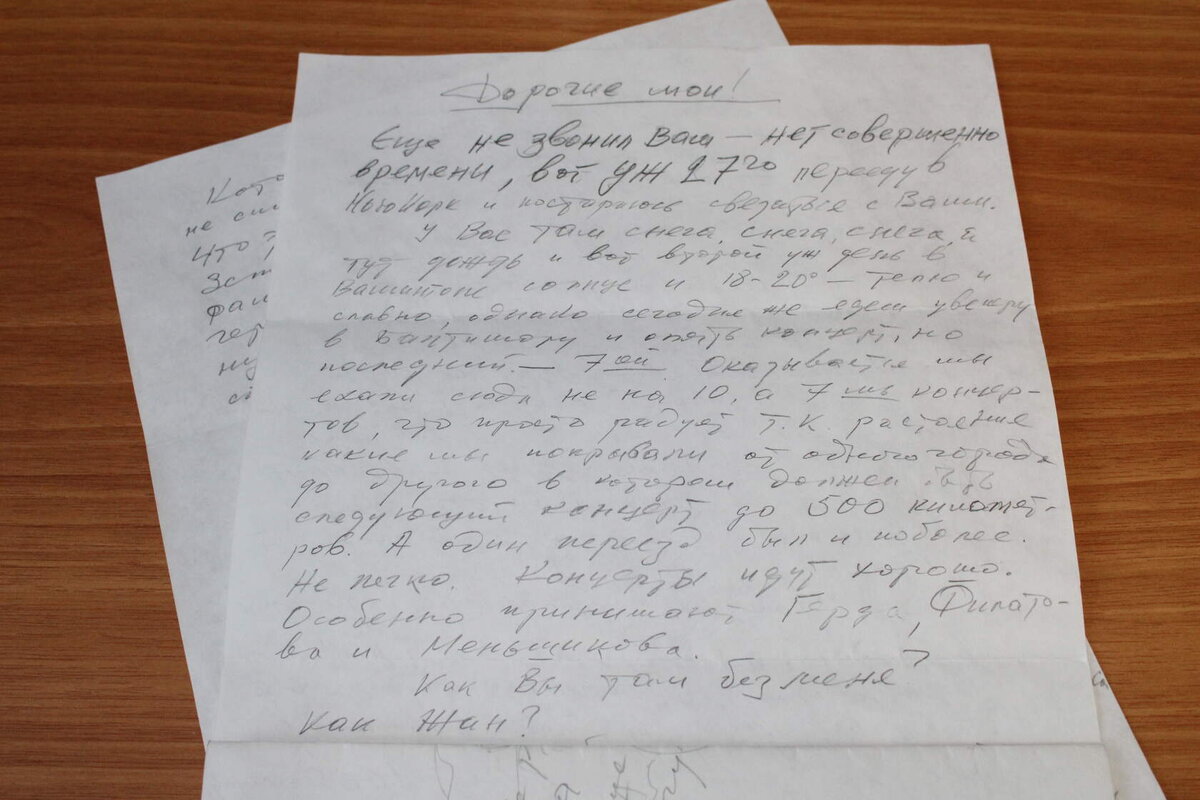 Дорогие мои!
Еще не звонил Вам — нет совершенно
времени, вот уж 27го перееду в
Нью Йорк и постараюсь связаться с Вами.
У Вас там снега, снега, снега, а
тут дождь и вот второй уж день в
Вашингтоне солнце и 18-20° — тепло и
славно, однако сегодня же едем увечеру
в Балтимору и опять концерт, но
последний — 7ой. Оказывается мы
ехали сюда не на 10, а 7мь концер-
тов, что просто радует т.к. растояние
какие мы покрывали от одного города
до другого в котором должен быть
следующий концерт до 500 километ-
ров. А один переезд был и поболее.
Не легко. Концерты идут хорошо.
Особенно принимают Гердта, Филато-
ва и Меньшикова.
Как Вы там без меня?
Как Жан?
не
Что